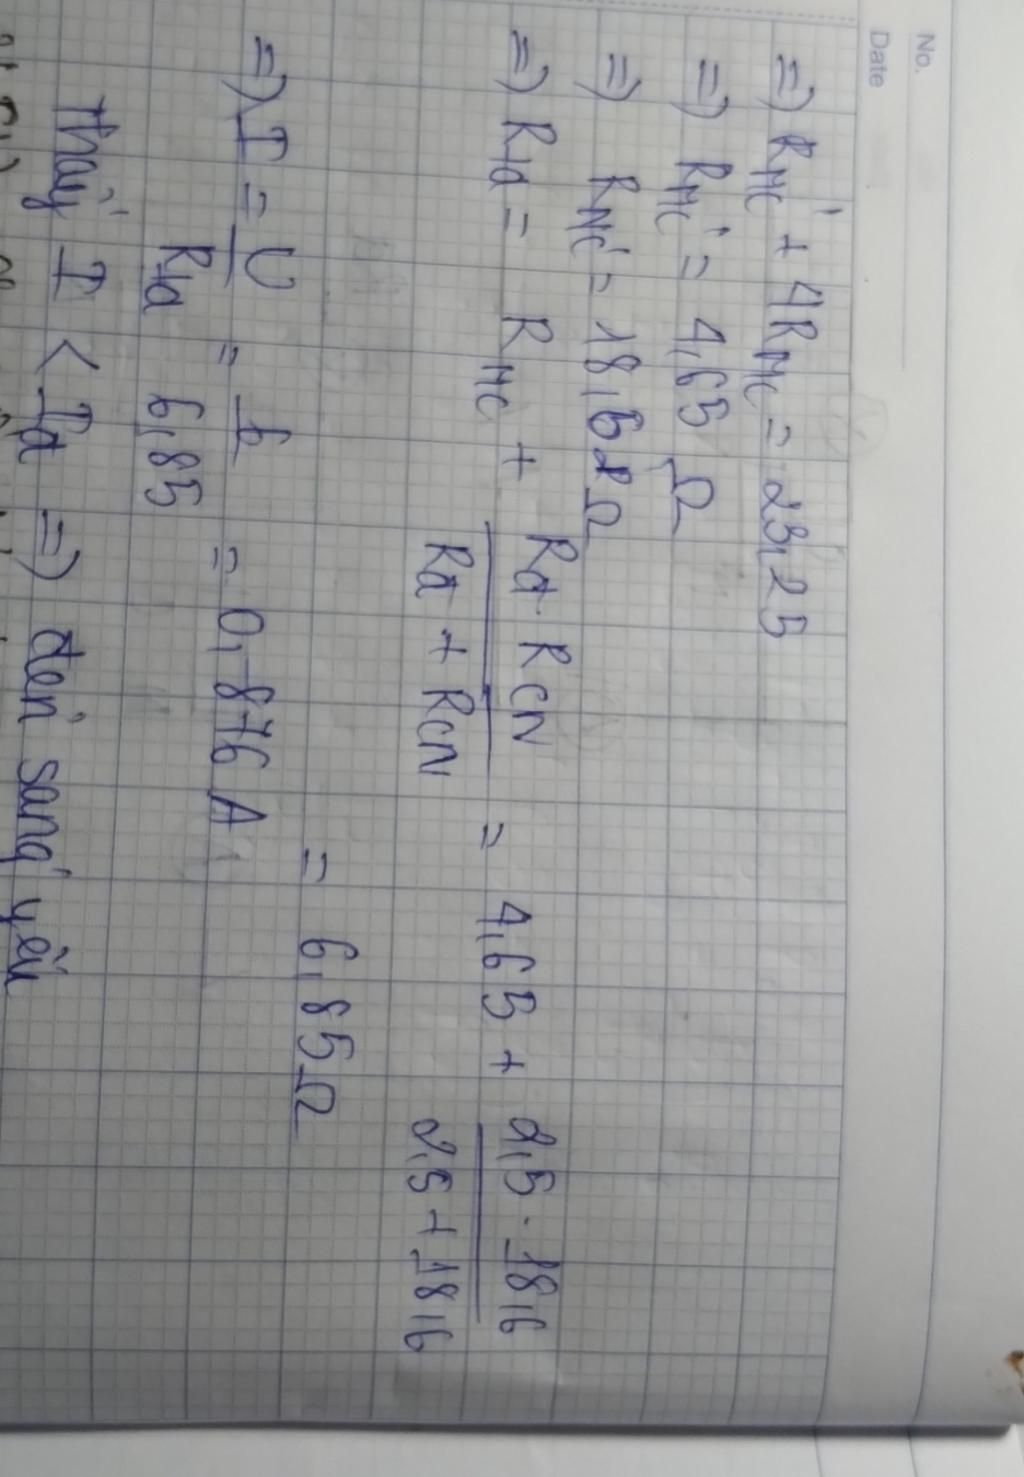 No.
Date
=> RMC' + 4RMC = 23,25
=> RMC' = 4,65 Ω
=> RNC' = 18,6 Ω
=> Rtđ = RMC + Rđ . RCN / Rđ + RCN = 4,65 + 2,5 . 18,6 / 2,5 + 18,6
= 6,85 Ω
=> I = U / Rtđ = 6 / 6,85 = 0,876 A
Thấy I < Iđ => đèn sáng yếu